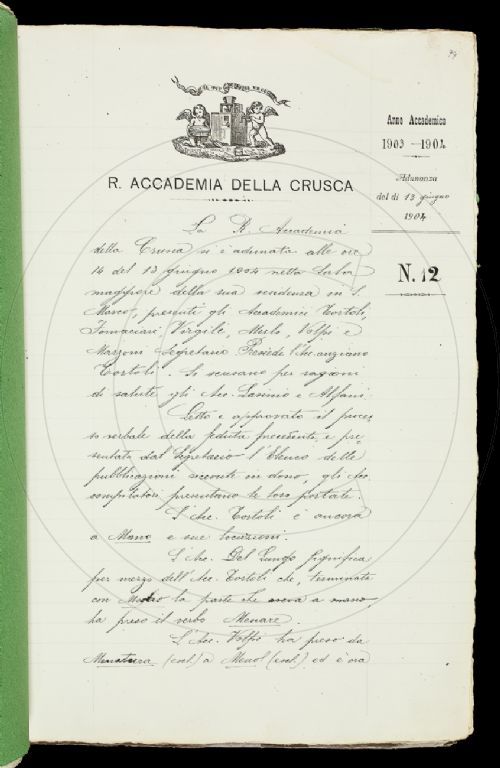 79
R. ACCADEMIA DELLA CRUSCA
Anno Accademico
1903-1904
Adunanza
del dì 13 giugno
1904
N. 12
La R. Accademia
della Crusca si è adunata alle ore
14 del 13 giugno 1904 nella Sala
maggiore della sua residenza in S.
Marco, presenti gli Accademici Tortoli,
Tommasini, Virgili, Merlo, Volpi e
Mazzoni Segretario. Presiede l'Ac. anziano
Tortoli. Si scusano per ragioni
di salute gli Acc. Lasinio e Alfani.
Letto e approvato il proces
so verbale della seduta precedente, e pre
sentato dal Segretario l'Elenco delle
pubblicazioni ricevute in dono, gli Acc.
compilatori presentano le loro portate.
L'Acc. Tortoli è ancora
a Mano e sue locuzioni.
L'Acc. Del Lungo significa
per mezzo dell'Acc. Tortoli che, terminata
con la parte che aveva a mano,
ha preso il verbo Menare.
L'Acc. Volpi ha preso da
(escl.) a (escl.) ed è ora